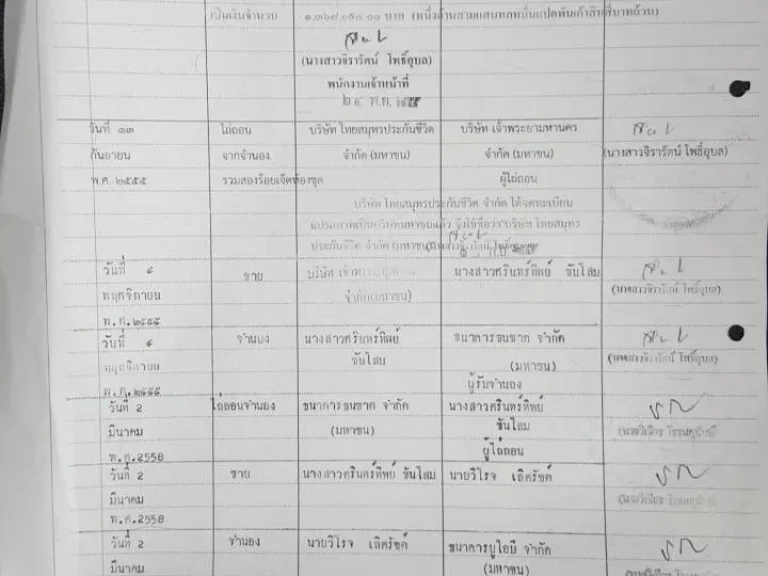 เป็นเงินจำนวน ๑,๓๖๘,๐๙๔.๐๐ บาท (หนึ่งล้านสามแสนหกหมื่นแปดพันเก้าสิบสี่บาทถ้วน)
(นางสาวจิรารัตน์ โพธิ์อุบล)
พนักงานเจ้าหน้าที่
พ.ค. ๒๕๕๕
วันที่ ๑๓ ไถ่ถอน บริษัท ไทยสมุทรประกันชีวิต บริษัท เจ้าพระยามหานคร
กันยายน จากจำนอง จำกัด (มหาชน) จำกัด (มหาชน) (นางสาวจิรารัตน์ โพธิ์อุบล)
พ.ศ. ๒๕๕๕ รวมสองร้อยเจ็ดห้องชุด ผู้ไถ่ถอน
บริษัท ไทยสมุทรประกันชีวิต จำกัด ได้จดทะเบียน
แปรสภาพเป็นบริษัทมหาชนแล้ว จึงใช้ชื่อว่า"บริษัท ไทยสมุทร
ประกันชีวิต จำกัด (มหาชน)
วันที่ ๙ ขาย บริษัท เจ้าพระยา นางสาวศรินทร์ทิพย์ ขันโสม
พฤศจิกายน จำกัด(มหาชน) (นางสาวจิรารัตน์ โพธิ์อุบล)
พ.ศ.๒๕๕๕
วันที่ ๙ จำนอง นางสาวศรินทร์ทิพย์ ธนาคารธนชาต จำกัด
พฤศจิกายน ขันโสม (มหาชน) (นางสาวจิรารัตน์ โพธิ์อุบล)
พ.ศ.๒๕๕๕ ผู้รับจำนอง
วันที่ 2 ไถ่ถอนจำนอง ธนาคารธนชาต จำกัด นางสาวศรินทร์ทิพย์
มีนาคม (มหาชน) ขันโสม
พ.ศ.2558 ผู้ไถ่ถอน
วันที่ 2 ขาย นางสาวศรินทร์ทิพย์ ขันโสม นายวิโรจ เลิศรัชต์
มีนาคม
พ.ศ.2558
วันที่ 2 จำนอง นายวิโรจ เลิศรัชต์ ธนาคารยูโอบี จำกัด
มีนาคม (มหาชน)